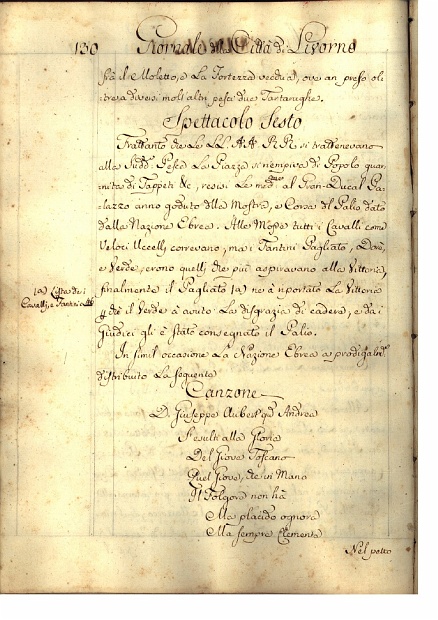 130 Giornale della Città di Livorno
frà il Moletto, e La Fortezza vecchia, ove an preso ol
tre a diversi molti altri pesci due Tartarughe.
Spettacolo Sesto
Trattanto che Le LL. AA. RR. si trattenevano
alla Pesca La Piazza si riempiva di Popolo
di Tappeti &c, Le al Gran-Ducal Pa
lazzo anno goduto della Mostra, e Corsa del Palio dato
dalla Nazione Ebrea. Alle Mosse tutti i Cavalli come
Veloci Uccelli correvano, ma i Fantini Pagliato, Dorè,
e Verde, erono quelli che più aspiravano alla Vittoria,
finalmente il Pagliato (a) ne à riportato La Vittoria
che il Verde à avuto La disgrazia di cadere, e da i
Giudici gli è stato consegnato il Palio.
(a) Lista de i
Cavalli, e Fantini
In simil occasione La Nazione Ebrea a
distribuito La seguente
Canzone
D. Giuseppe Aubert Andrea
Fesulti alla Gloria
Del Giove Toscano
Quel Giove, che in Mano
Il Folgore non hà
Ma placido ognora
Ma sempre Clemente
Nel petto